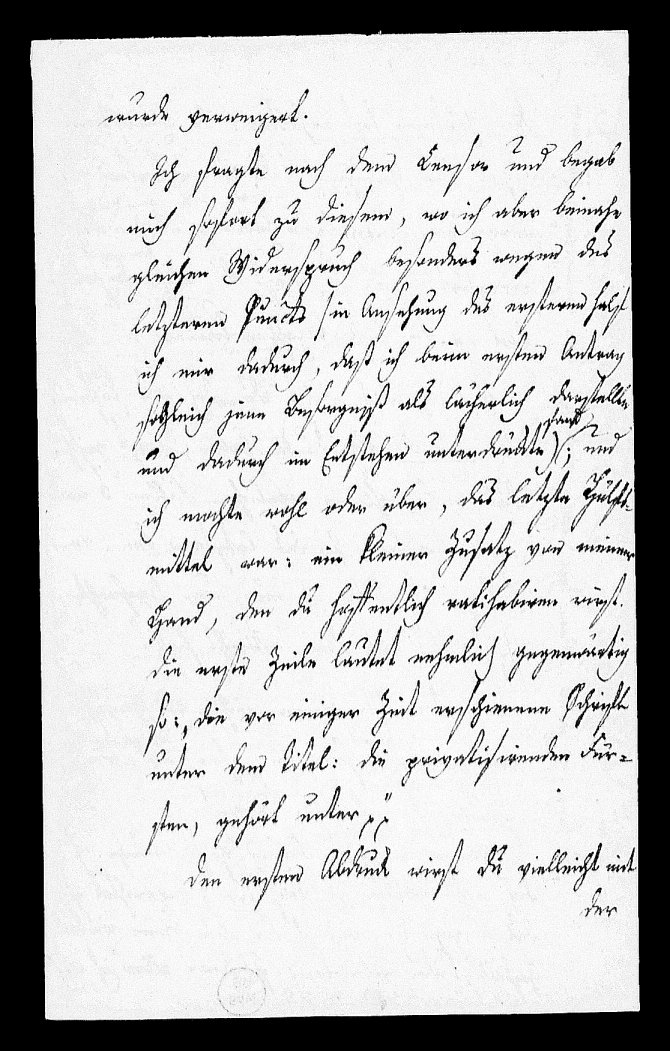 wurde verweigert.
Ich fragte nach dem Censor und begab
mich sofort zu diesem, wo ich aber beinahe
gleichen Widerspruch besonders wegen des
letzteren Puncts (in Ansehung des ersteren half
ich mir dadurch, daß ich beim ersten Antrag
sogleich jene Besorgniß als lächerlich darstellte
und dadurch im Entstehen unterdrückte); und
ich mochte wohl oder über, das letzte Hülfs-
mittel war: ein kleiner Zusatz von meiner
Hand, den du hoffentlich ratihabiren wirst.
die erste Zeile lautet nehmlich gegenwärtig
so: „die vor einiger Zeit erschienene Schrift
unter dem Titel: die privatisirenden Für-
sten, gehört unter xx"
den ersten Abdruck wirst du vielleicht mit
der